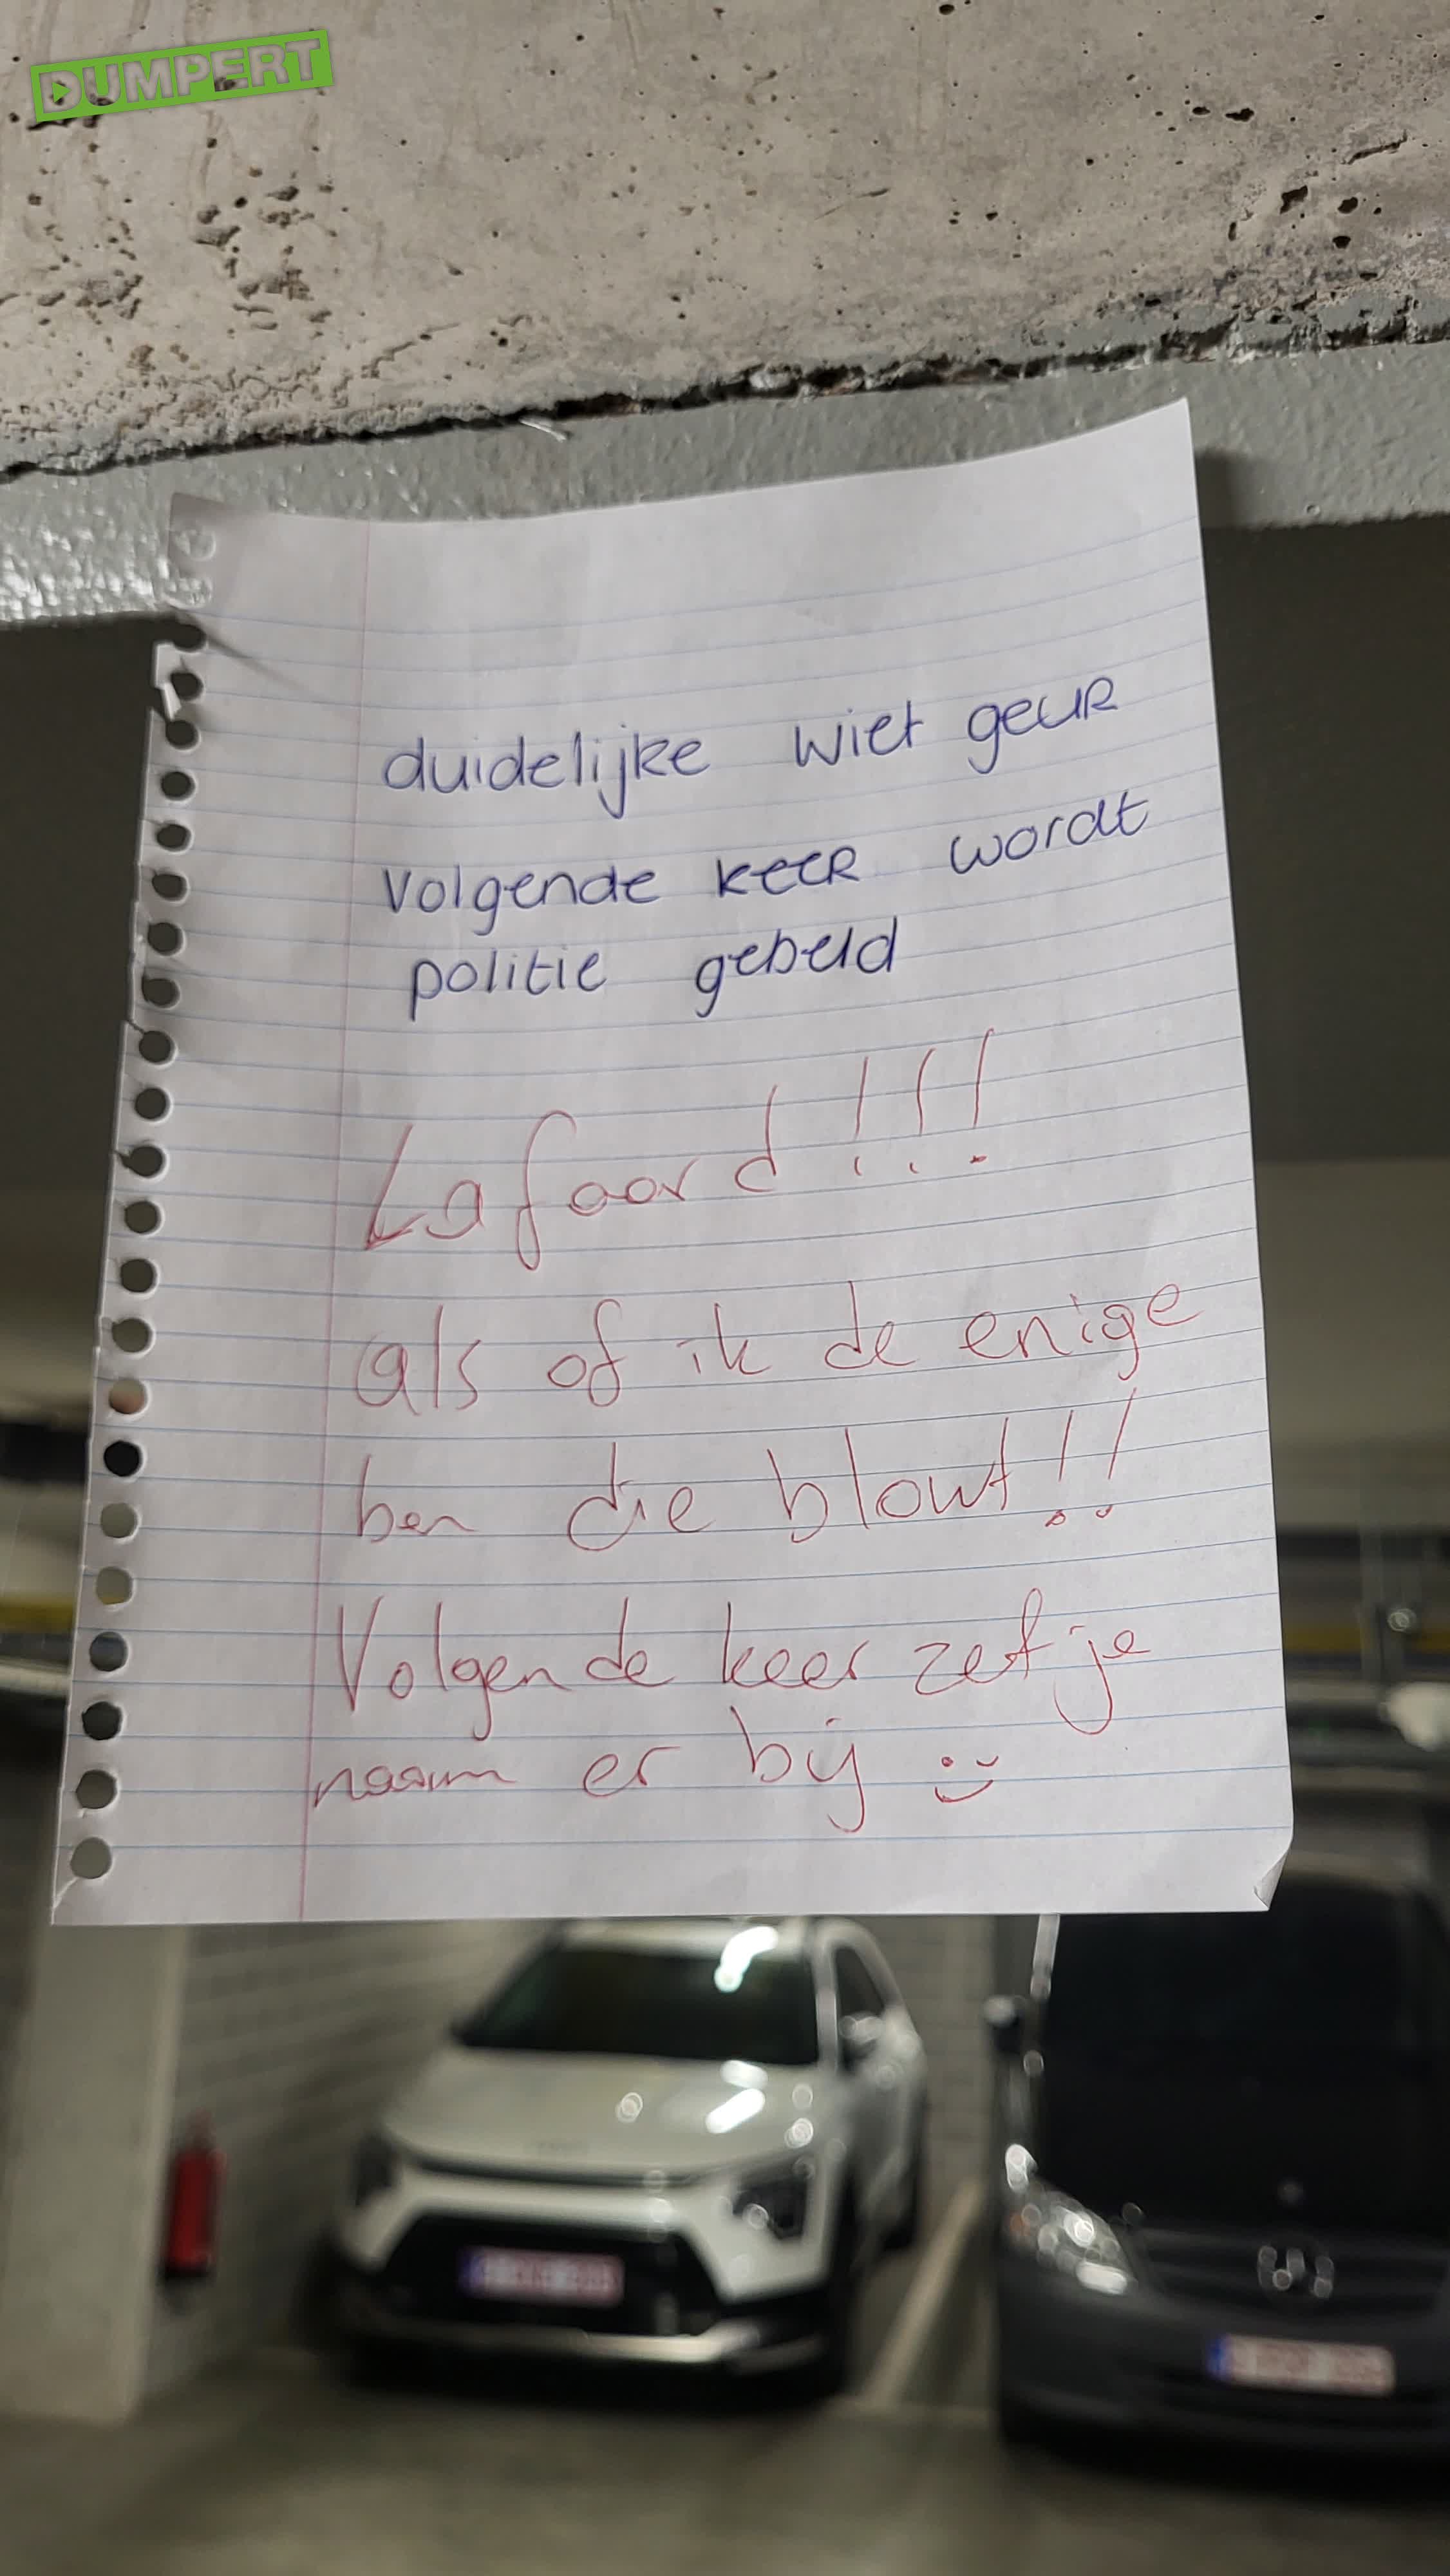 DUMPERT
duidelijke wiet geur
volgende keer wordt
politie gebeld
Lafaard!!!
als of ik de enige
ben die blowt!!
Volgende keer zet je
naam er bij :)